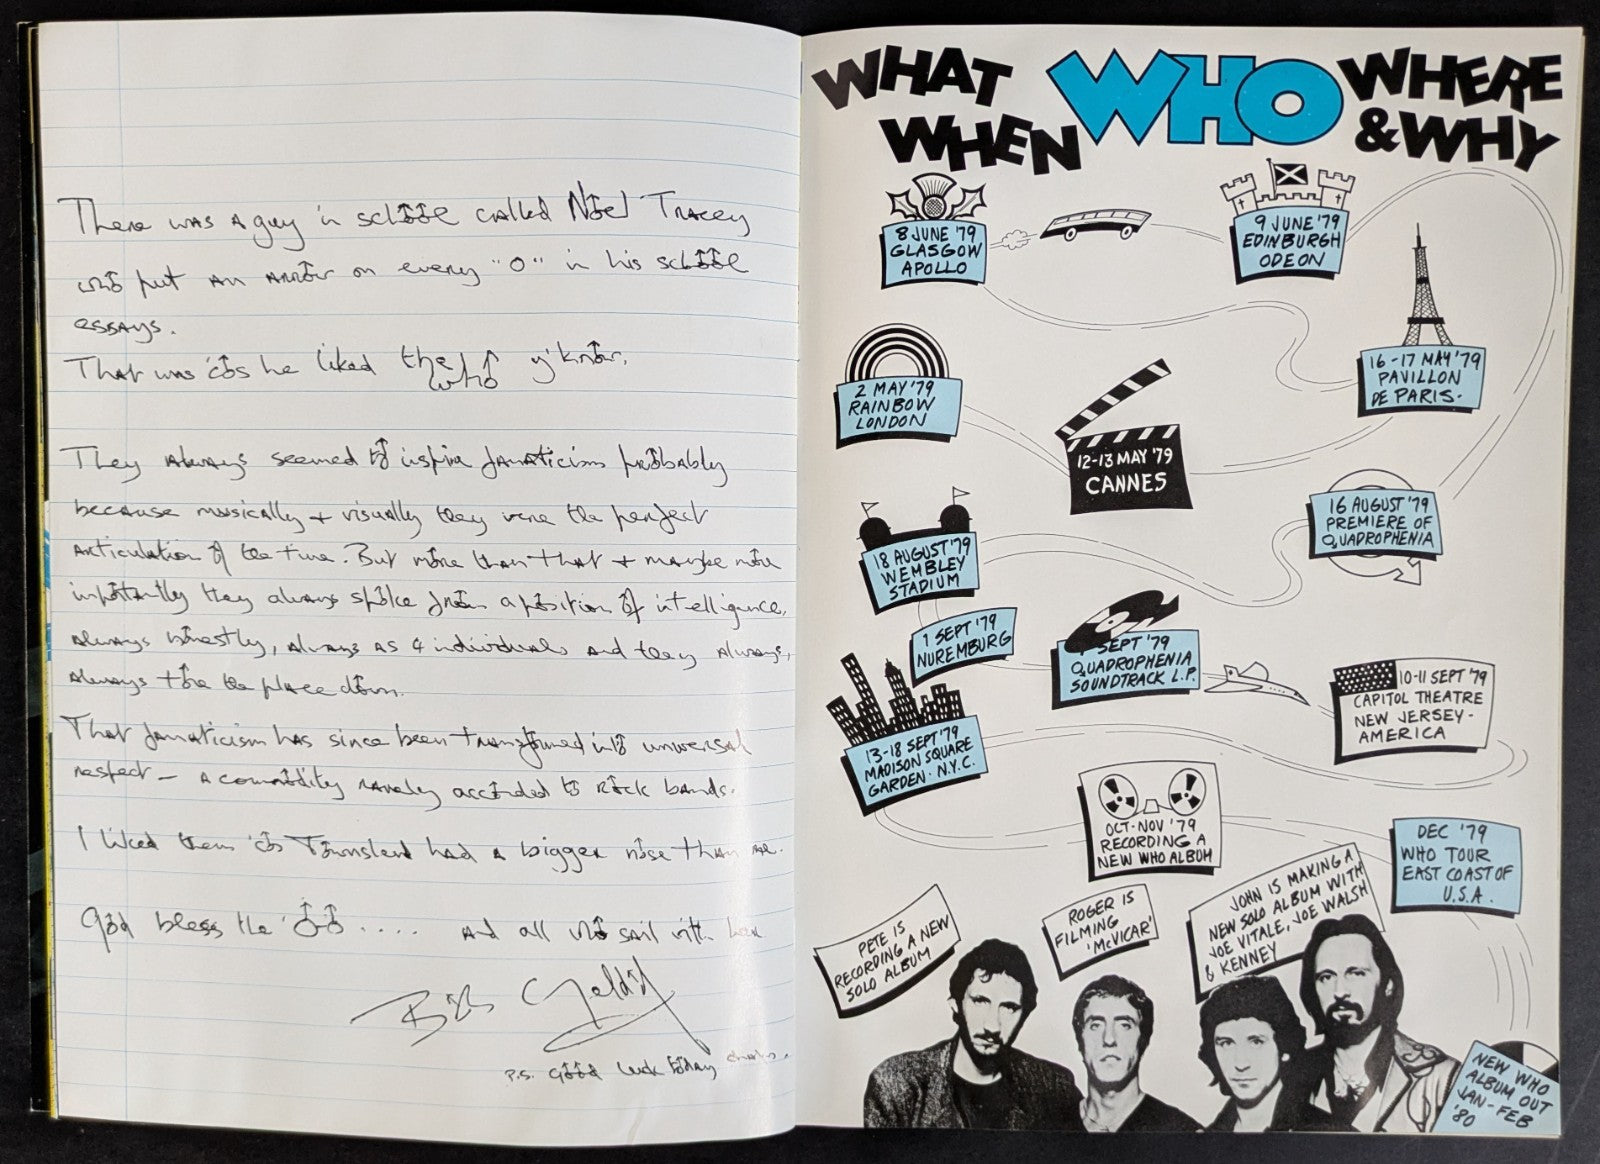 There was a guy in school called Noel Tracey
who put an arrow on every "O" in his school
essays.
That was 'cos he liked the Who y'know.
They always seemed to inspire fanaticism probably
because musically + visually they were the perfect
articulation of the time. But more than that + maybe more
importantly they always spoke from a position of intelligence,
always honestly, always as 4 individuals and they always,
always tore the place down.
That fanaticism has since been transformed into universal
respect - a commodity rarely accorded to Rock bands.
I liked them 'cos Townshend had a bigger nose than me.
God bless the 'OO ..... and all who sail with
Bob Geldof
P.S. Good luck today
WHAT WHO WHERE
WHEN & WHY
8 JUNE '79
GLASGOW
APOLLO
9 JUNE '79
EDINBURGH
ODEON
16-17 MAY '79
PAVILLON
DE PARIS.
2 MAY '79
RAINBOW
LONDON
12-13 MAY '79
CANNES
16 AUGUST '79
PREMIERE OF
QUADROPHENIA
18 AUGUST '79
WEMBLEY
STADIUM
1 SEPT '79
NUREMBURG
SEPT '79
QUADROPHENIA
SOUNDTRACK L.P.
10-11 SEPT '79
CAPITOL THEATRE
NEW JERSEY-
AMERICA
13-18 SEPT '79
MADISON SQUARE
GARDEN. N.Y.C.
OCT-NOV '79
RECORDING A
NEW WHO ALBUM
DEC '79
WHO TOUR
EAST COAST OF
U.S.A.
PETE IS
RECORDING A NEW
SOLO ALBUM
ROGER IS
FILMING
'McVICAR'
JOHN IS MAKING A
NEW SOLO ALBUM WITH
JOE VITALE, JOE WALSH
& KENNEY
NEW WHO
ALBUM OUT
JAN-FEB
'80